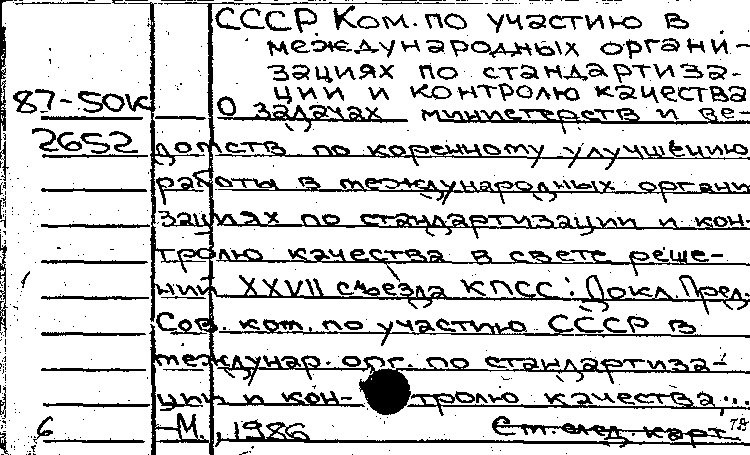 СССР Ком. по участию в
международных органи-
зациях по стандартиза-
ции и контролю качества
87-50к О задачах министерств и ве-
2652 домств по коренному улучшению
работы в международных органи
зациях по стандартизации и кон-
тролю качества в свете реше-
ний XXVII съезда КПСС: Докл. Пред.
Сов. ком. по участию СССР в
междунар. орг. по стандартиза-
ции и кон- тролю качества,...
6 -М., 1986 См. след. карт